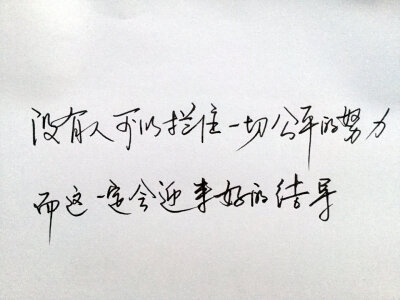 没有人可以拦住一切公平的努力
而这一定会迎来好的结果